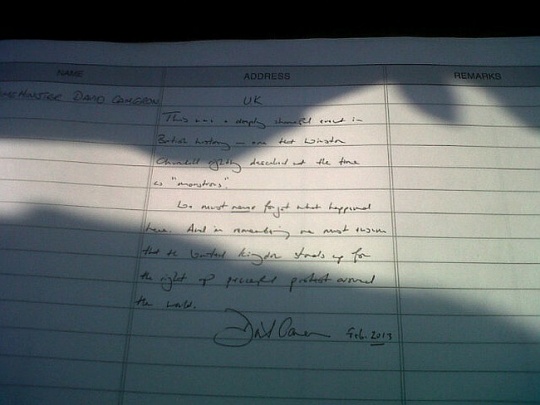 NAME ADDRESS REMARKS
ME MINISTER DAVID CAMERON UK
This was a deeply shameful event in
British history – one that Winston
Churchill rightly described at the time
as "monstrous".
We must never forget what happened
here. And in remembering we must ensure
that the United Kingdom stands up for
the right of peaceful protest around
the world.
David Cameron Feb. 2013